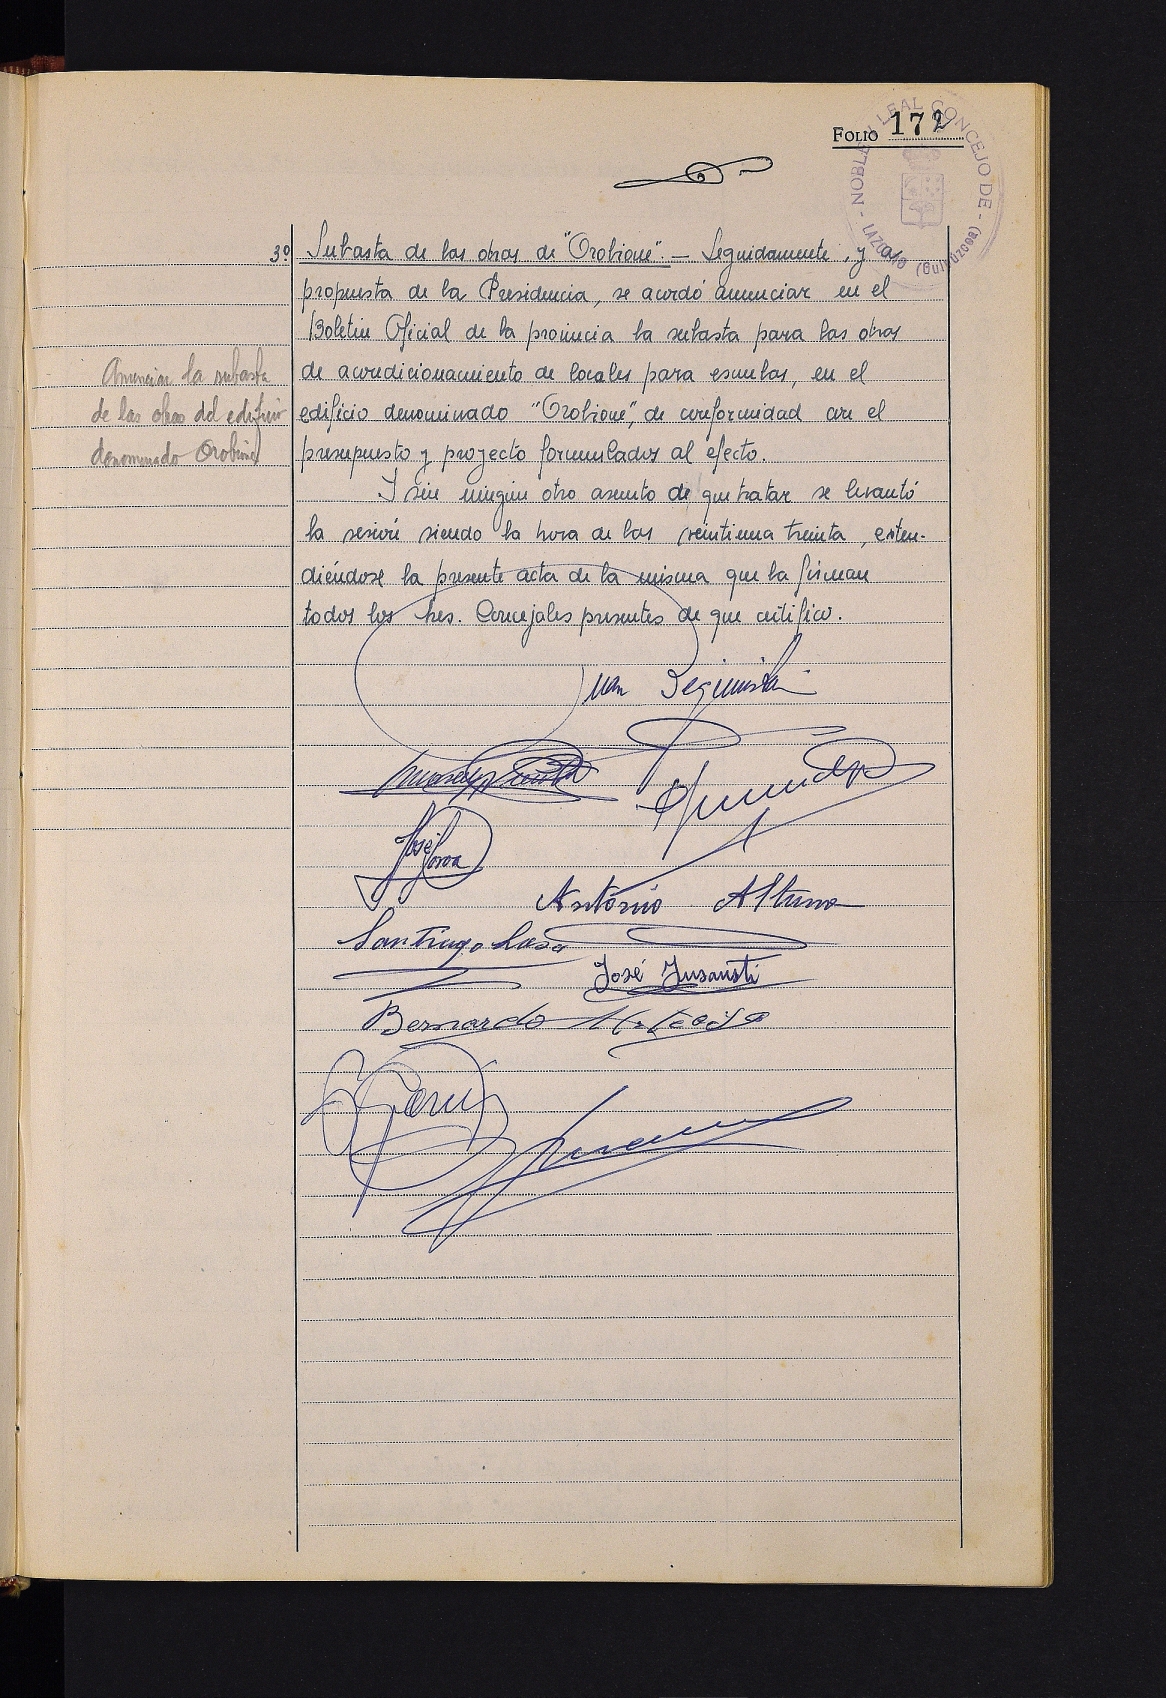 FOLIO 172
NOBLE Y LEAL CONCEJO DE LAZCANO (Guipúzcoa)
3º Subasta de las obras de "Orobione". — Seguidamente, y a
propuesta de la Presidencia, se acordó anunciar en el
Boletin Oficial de la provincia la subasta para las obras
de acondicionamiento de locales para escuelas, en el
edificio denominado "Orobione", de conformidad con el
presupuesto y proyecto formulados al efecto.
Y sin ningún otro asunto de que tratar se levantó
la sesión siendo la hora de las veintiuna treinta, exten-
diéndose la presente acta de la misma que la firman
todos los Sres. Concejales presentes de que certifico.
Anunciar la subasta
de las obras del edificio
denominado Orobione
Juan
José
Antonio Altuna
Santiago Lasa
José Insausti
Bernardo